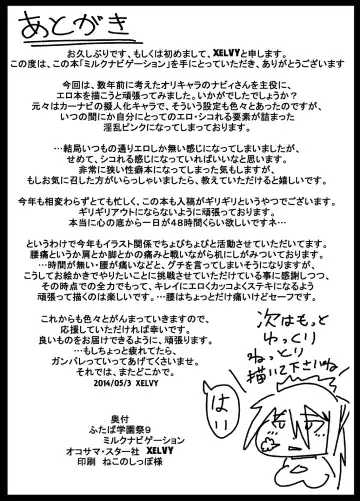 あとがき
お久しぶりです、もしくは初めまして、XELVYと申します。
この度は、この本「ミルクナビゲーション」を手にとっていただき、ありがとうございます
今回は、数年前に考えたオリキャラのナビィさんを主役に、
エロ本を描こうと頑張ってみました。いかがでしたでしょうか?
元々はカーナビの擬人化キャラで、そういう設定も色々とあったのですが、
いつの間にか自分にとってのエロ・シコれる要素が詰まった
淫乱ピンクになってしまっております。
……結局いつもの通りエロしか無い感じになってしまいましたが、
せめて、シコれる感じになっていればいいなと思います。
非常に狭い性癖本になってしまった気もしますが、
もしお気に召した方がいらっしゃいましたら、教えていただけると嬉しいです。
今年も相変わらずとても忙しく、この本も入稿がギリギリというやつでございます。
ギリギリアウトにならないように頑張っております。
本当に心の底から一日が48時間くらい欲しいですネ…
というわけで今年もイラスト関係でちょびちょびと活動させていただいてます。
腰痛というか肩とか脚とかの痛みと戦いながら机にしがみついております。
……時間が無い・腰が痛いなどと、グチを言ってしまいそうになりますが、
こうしてお絵かきでやりたいことに挑戦させていただけている事に感謝しつつ、
その時点での全力でもって、キレイにエロくカッコよくステキになるよう
頑張って描けるのは楽しいです。…腰はちょっとだけ痛いけどセーフです。
これからも色々とがんまっていきますので、
応援していただければ幸いです。
良いものをお届けできるように、頑張ります。
…もしちょっと疲れてたら、
ガンバレっていってあげてくださいませ。
それでは、またどこかで。
2014/05/3 XELVY
次はもっと
ゆっくり
ねっとり
描いて下さいね
はい
奥付
ふたば学園祭9
ミルクナビゲーション
オコサマ・スター社 XELVY
印刷 ねこのしっぽ様